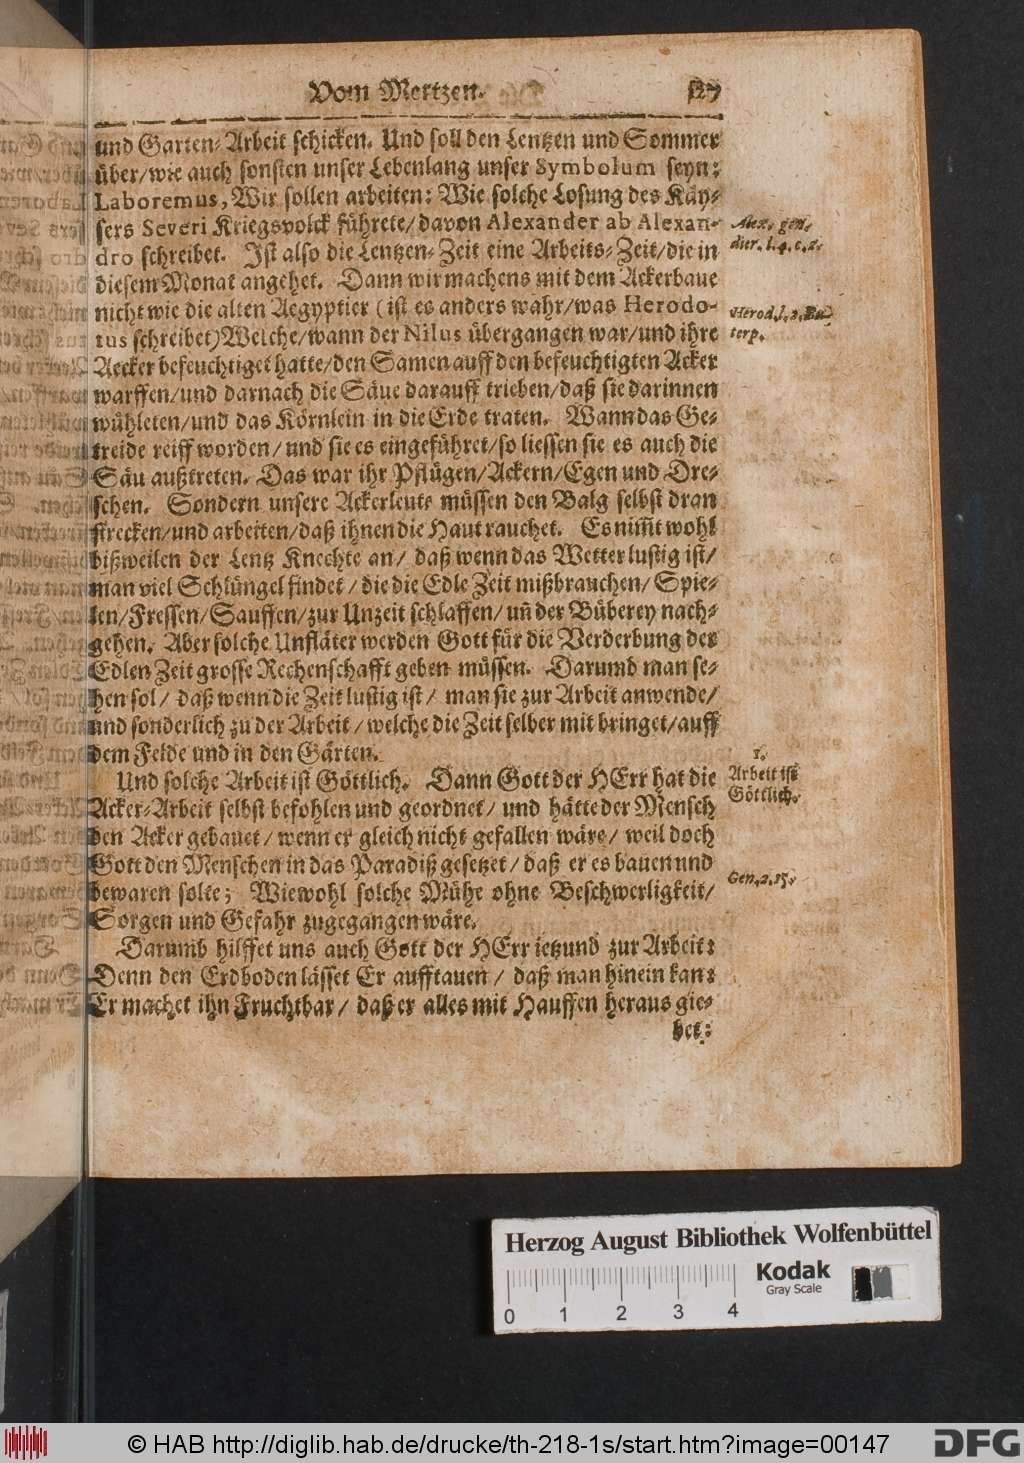 Vom Mertzen. 127
und Garten-Arbeit schicken. Und soll den Lentzen und Sommer
über/ wie auch sonsten unser Lebenlang unser Symbolum seyn:
Laboremus, Wir sollen arbeiten: Wie solche Losung des Käy-
sers Severi Kriegsvolck führete/ davon Alexander ab Alexan-
dro schreibet. Ist also die Lentzen-Zeit eine Arbeits-Zeit/ die in
Alex. gen.
dier. l. 4. c. 2.
diesem Monat angehet. Dann wir machens mit dem Ackerbaue
nicht wie die alten Aegyptier (ist es anders wahr/ was Herodo-
tus schreibet) Welche/ wann der Nilus übergangen war/ und ihre
Herod. l. 2. Eu-
terp.
Aecker befeuchtiget hatte/ den Samen auff den befeuchtigten Acker
warffen/ und darnach die Säue darauff trieben/ daß sie darinnen
wühleten/ und das Körnlein in die Erde traten. Wann das Ge-
treide reiff worden/ und sie es eingeführet/ so liessen sie es auch die
Säu außtreten. Das war ihr Pflügen/ Ackern/ Egen und Dre-
schen. Sondern unsere Ackerleute müssen den Balg selbst dran
strecken/ und arbeiten/ daß ihnen die Haut rauchet. Es nim̃t wohl
bißweilen der Lentz Knechte an/ daß wenn das Wetter lustig ist/
man viel Schlüngel findet/ die die Edle Zeit mißbrauchen/ Spie-
len/ Fressen/ Sauffen/ zur Unzeit schlaffen/ uñ der Büberey nach-
gehen. Aber solche Unfläter werden Gott für die Verderbung der
Edlen Zeit grosse Rechenschafft geben müssen. Darumb man se-
hen sol/ daß wenn die Zeit lustig ist/ man sie zur Arbeit anwende/
und sonderlich zu der Arbeit/ welche die Zeit selber mit bringet/ auff
dem Felde und in den Gärten.
Und solche Arbeit ist Göttlich. Dann Gott der HErr hat die
1.
Arbeit ist
Göttlich.
Acker-Arbeit selbst befohlen und geordnet/ und hätte der Mensch
den Acker gebauet/ wenn er gleich nicht gefallen wäre/ weil doch
Gott den Menschen in das Paradiß gesetzet/ daß er es bauen und
bewaren solte; Wiewohl solche Mühe ohne Beschwerligkeit/
Gen. 2. 15.
Sorgen und Gefahr zugegangen wäre.
Darumb hilffet uns auch Gott der HErr ietzund zur Arbeit:
Denn den Erdboden lässet Er aufftauen/ daß man hinein kan:
Er machet ihn Fruchtbar/ daß er alles mit Hauffen heraus gie-
bet:
Herzog August Bibliothek Wolfenbüttel
Kodak
Gray Scale
0 1 2 3 4
© HAB http://diglib.hab.de/drucke/th-218-1s/start.htm?image=00147
DFG